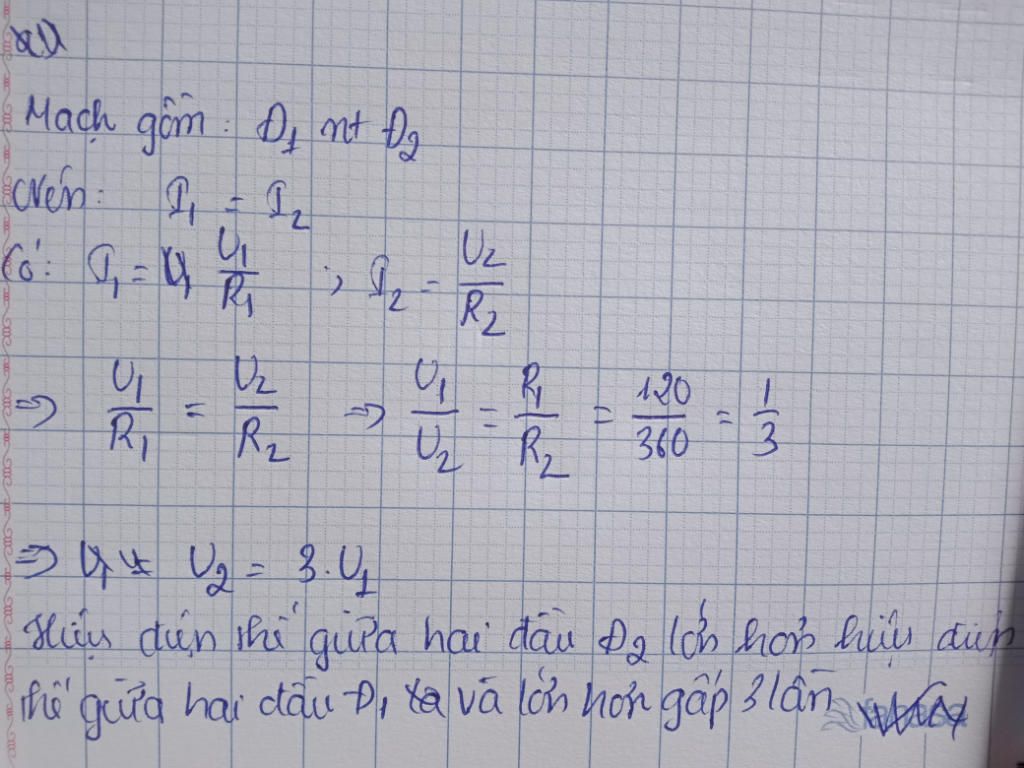 Mạch gồm: Đ₁ nt Đ₂
nên: I₁ = I₂
Có: I₁ = U₁/R₁ ; I₂ = U₂/R₂
=> U₁/R₁ = U₂/R₂ => U₁/U₂ = R₁/R₂ = 120/360 = 1/3
=> U₂ = 3.U₁
Hiệu điện thế giữa hai đầu Đ₂ lớn hơn hiệu điện
thế giữa hai đầu Đ₁ và lớn hơn gấp 3 lần